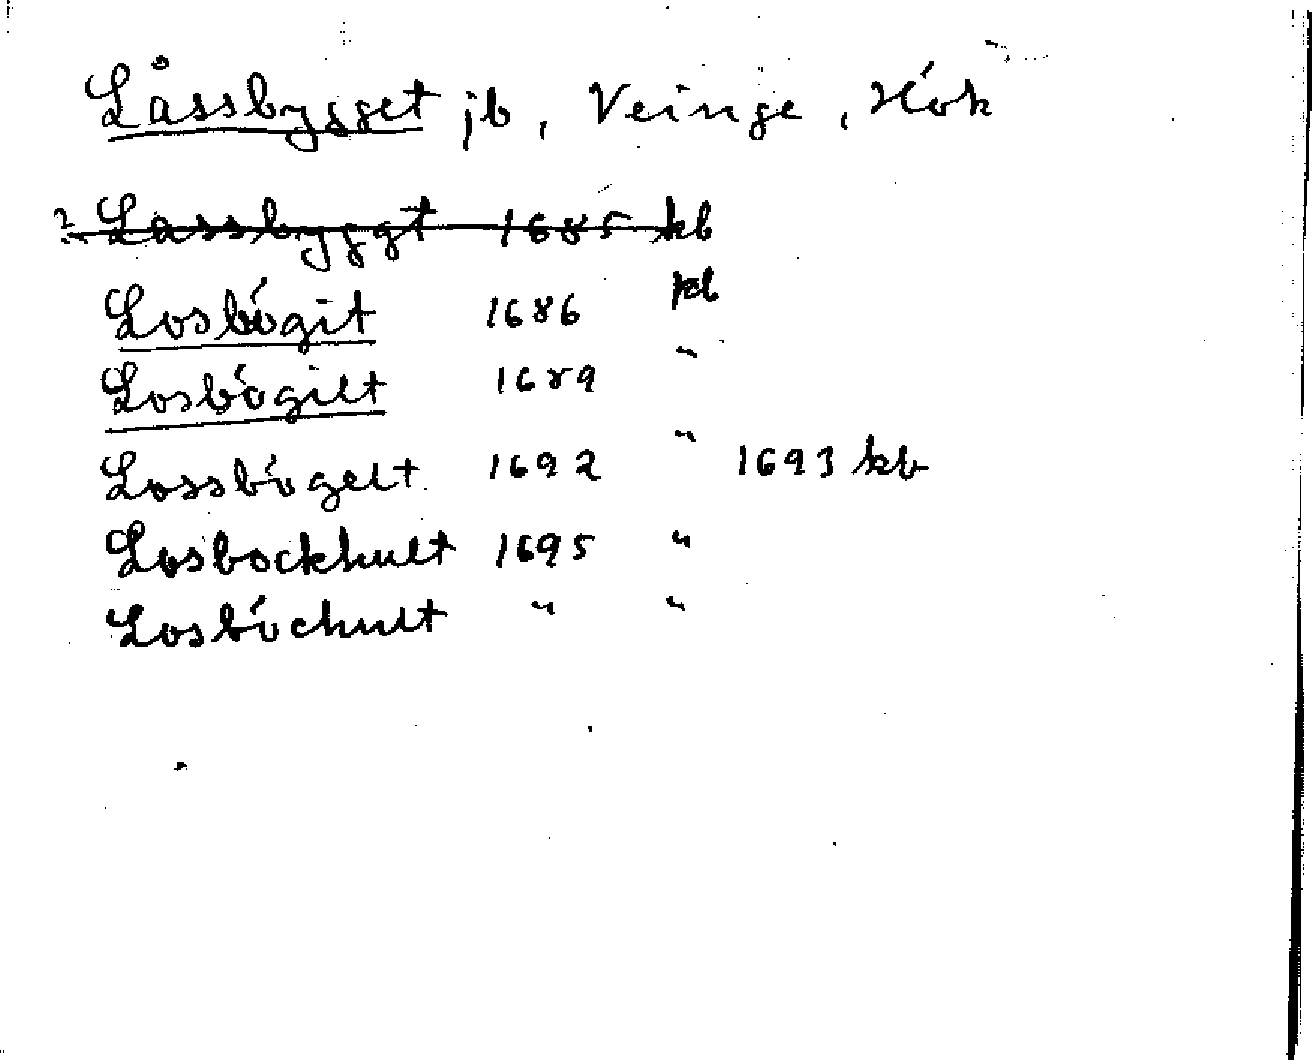 Låssbygget jb, Veinge, Hök
? Lassbyggt 1685 kb
Losbögit 1686 kb
Losbögilt 1689 "
Lossbögelt 1692 " 1693 kb
Losbockhult 1695 "
Losböchult " "